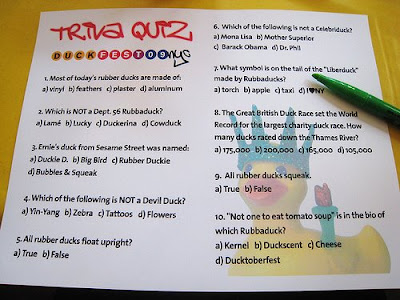 TRIVA QUIZ
DUCKFEST09NYC
1. Most of today's rubber ducks are made of:
a) vinyl b) feathers c) plaster d) aluminum
2. Which is NOT a Dept. 56 Rubbaduck?
a) Lamé b) Lucky c) Duckerina d) Cowduck
3. Ernie's duck from Sesame Street was named:
a) Duckie D. b) Big Bird c) Rubber Duckie
d) Bubbles & Squeak
4. Which of the following is NOT a Devil Duck?
a) Yin-Yang b) Zebra c) Tattoos d) Flowers
5. All rubber ducks float upright?
a) True b) False
6. Which of the following is not a Celebriduck?
a) Mona Lisa b) Mother Superior
c) Barack Obama d) Dr. Phil
7. What symbol is on the tail of the "Liberduck"
made by Rubbaducks?
a) torch b) apple c) taxi d) I♥NY
8. The Great British Duck Race set the World
Record for the largest charity duck race. How
many ducks raced down the Thames River?
a) 175,000 b) 200,000 c) 165,000 d) 105,000
9. All rubber ducks squeak.
a) True b) False
10. "Not one to eat tomato soup" is in the bio of
which Rubbaduck?
a) Kernel b) Duckscent c) Cheese
d) Ducktoberfest